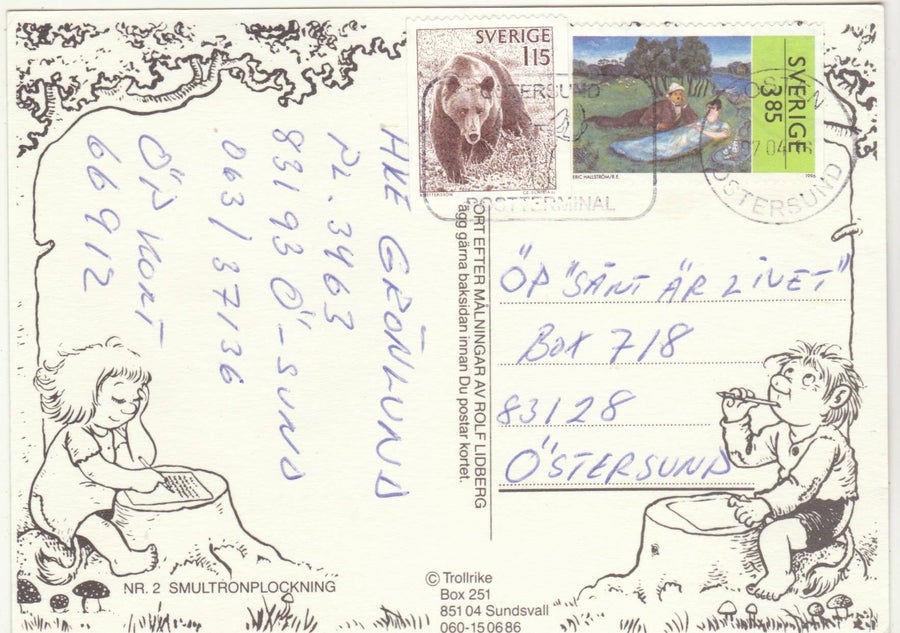 SVERIGE
115
SVERIGE
3.85
ERIC HALLSTRÖM/R.E.
1996
ÖSTERSUND
POSTTERMINAL
97 04
ÖSTERSUND
HKE GRÖNLUND
PL. 3463
83193 Ö-SUND
063/37136
ÖP KORT
66912
KORT EFTER MÅLNINGAR AV ROLF LIDBERG
lägg gärna baksidan innan Du postar kortet.
ÖP "SÅNT ÄR LIVET"
Box 718
83128
ÖSTERSUND
NR. 2 SMULTRONPLOCKNING
© Trollrike
Box 251
851 04 Sundsvall
060-15 06 86